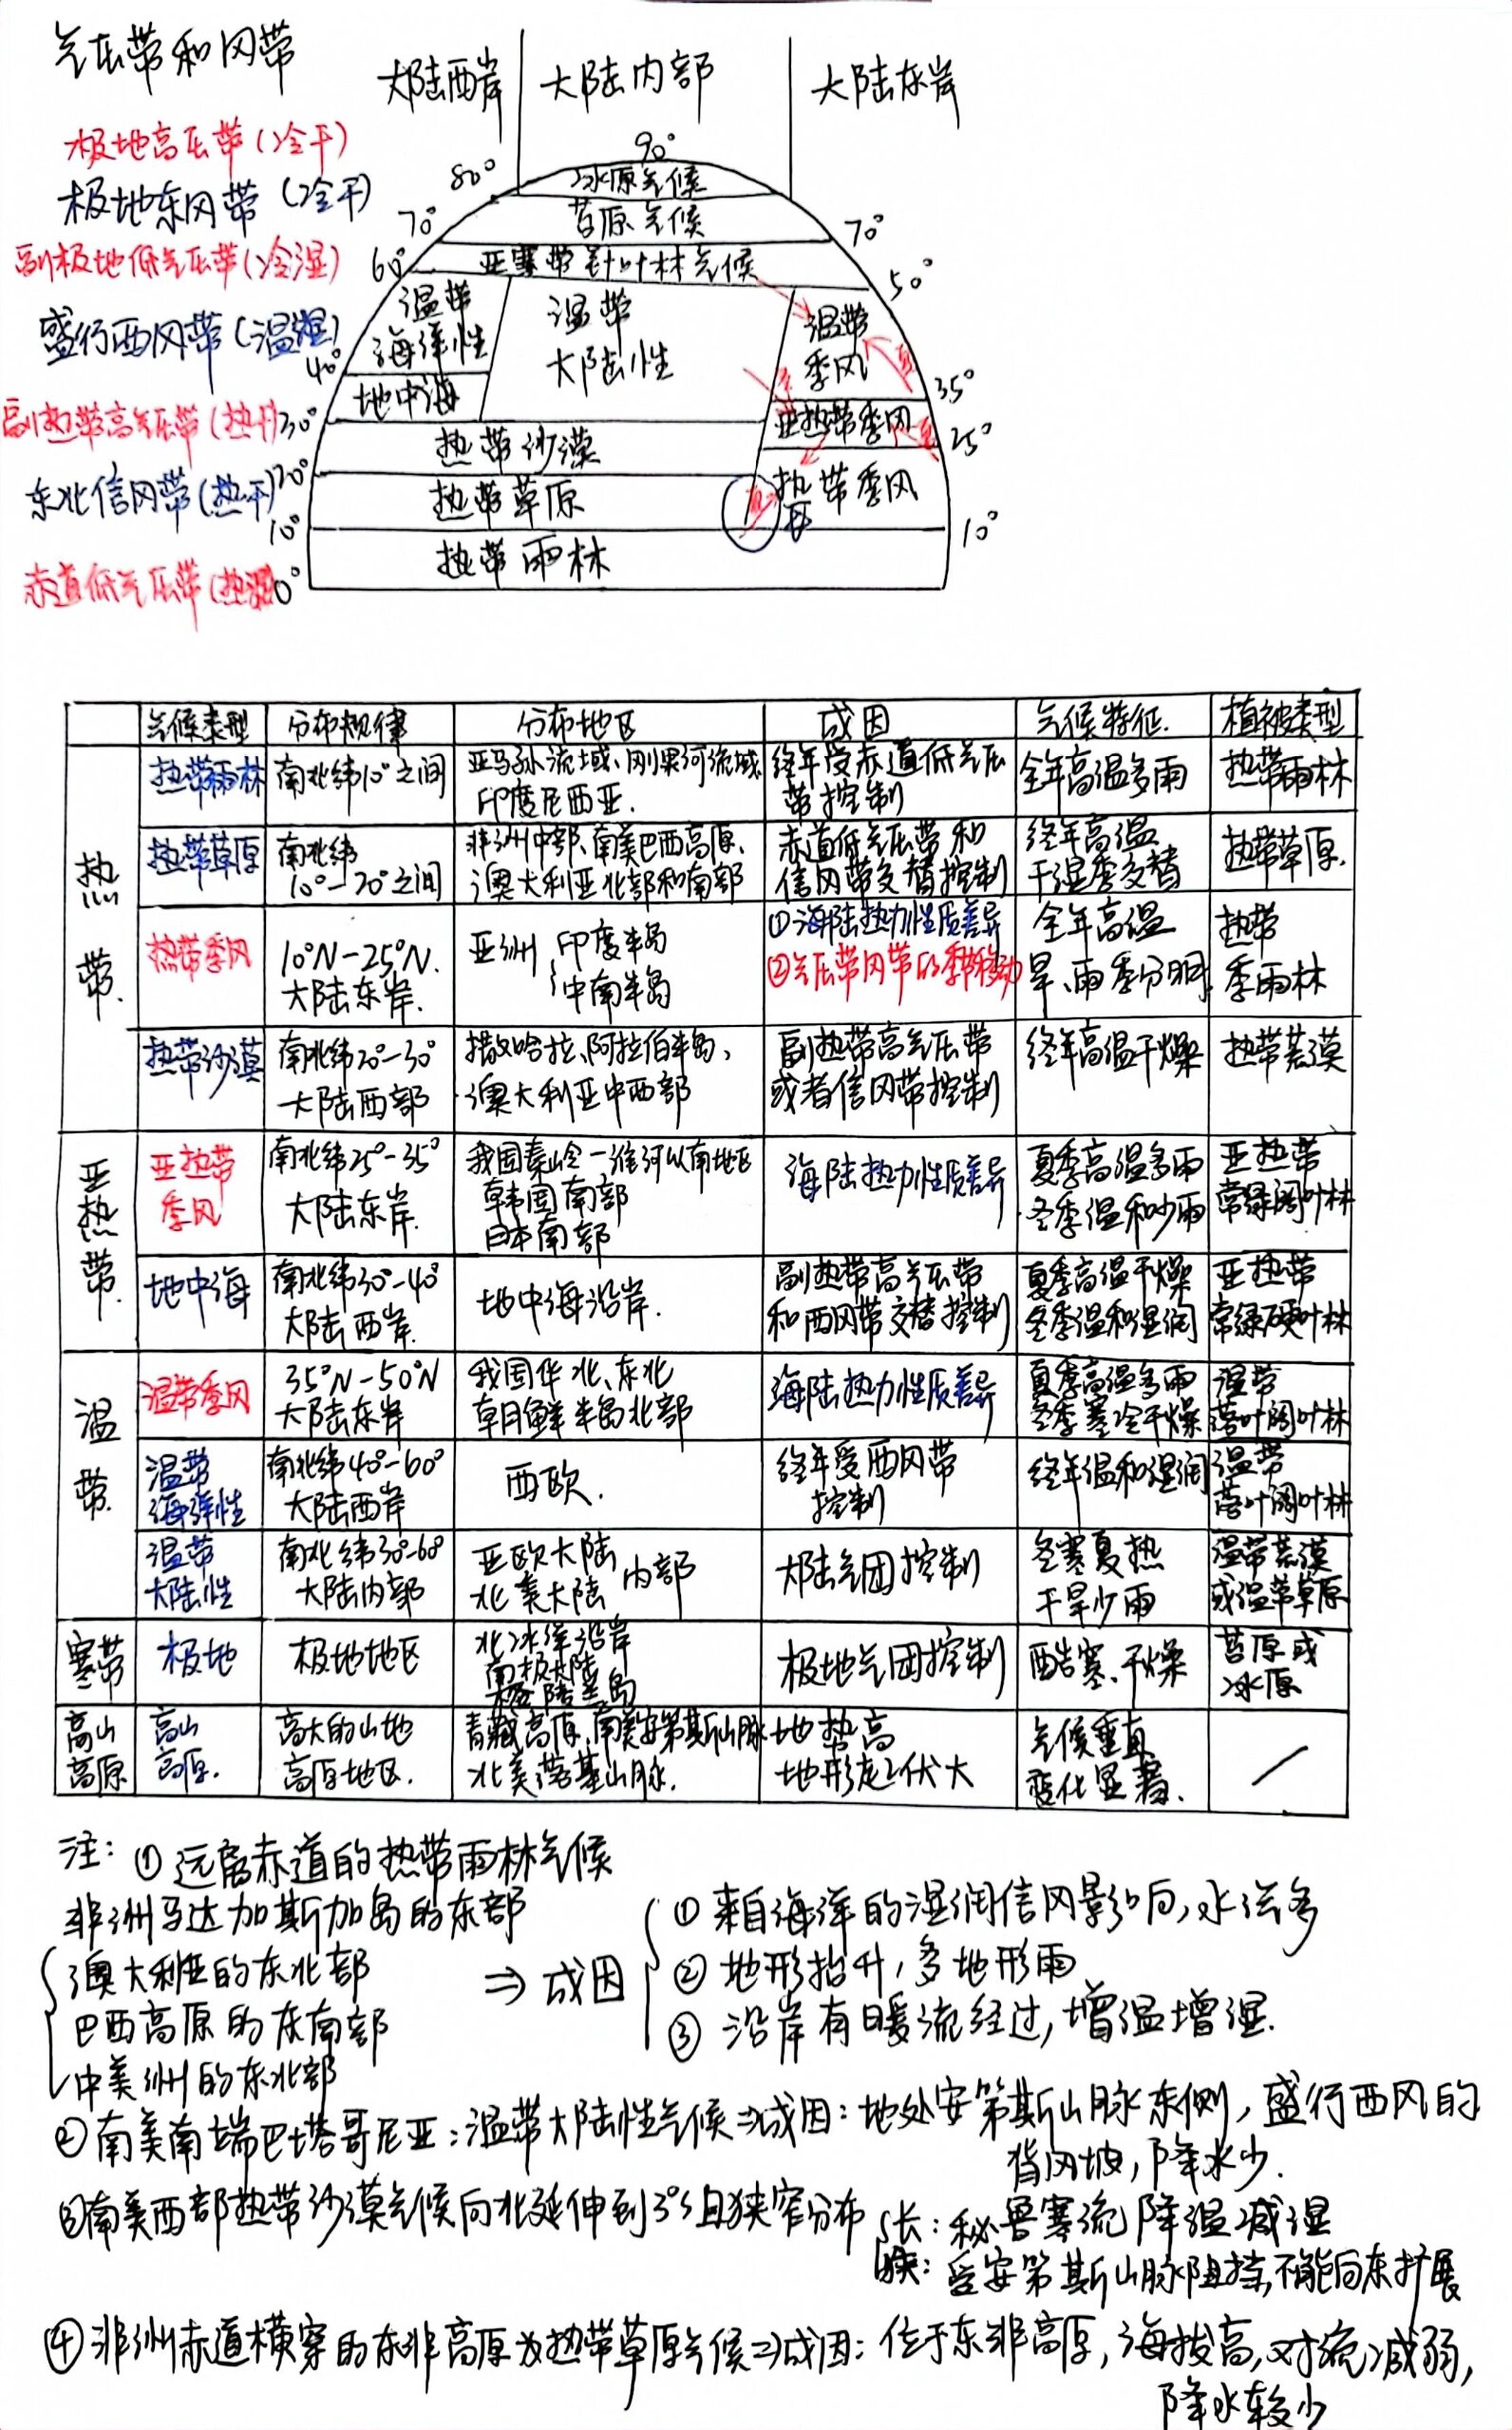 气压带和风带
大陆西岸 大陆内部 大陆东岸
极地高压带(冷干)
极地东风带(冷干)
副极地低气压带(冷湿)
盛行西风带(温湿)
副热带高气压带(热干)
东北信风带(热干)
赤道低气压带(热湿)
90°
80°
70° 70°
60° 50°
40° 35°
30° 25°
20°
10° 10°
0°
冰原气候
苔原气候
亚寒带针叶林气候
温带
海洋性
温带
大陆性
温带
季风
地中海
亚热带季风
热带沙漠
热带草原
热带季风
热带雨林
冬
夏
夏
夏
气候类型 分布规律 分布地区 成因 气候特征. 植被类型
热带.
热带雨林 南北纬10°之间 亚马孙流域、刚果河流域 印度尼西亚. 终年受赤道低气压带控制 全年高温多雨 热带雨林
热带草原 南北纬10°-20°之间 非洲中部、南美巴西高原、澳大利亚北部和南部 赤道低气压带和信风带交替控制 终年高温 干湿季交替 热带草原.
热带季风 10°N-25°N. 大陆东岸. 亚洲 印度半岛 中南半岛 ①海陆热力性质差异 ②气压带风带的季节移动 全年高温 旱、雨季分明 热带季雨林
热带沙漠 南北纬20°-30° 大陆西部 撒哈拉、阿拉伯半岛、澳大利亚中西部 副热带高气压带或者信风带控制 终年高温干燥 热带荒漠
亚热带.
亚热带季风 南北纬25°-35° 大陆东岸. 我国秦岭-淮河以南地区 韩国南部 日本南部 海陆热力性质差异 夏季高温多雨 冬季温和少雨 亚热带常绿阔叶林
地中海 南北纬30°-40° 大陆西岸. 地中海沿岸. 副热带高气压带和西风带交替控制 夏季高温干燥 冬季温和湿润 亚热带常绿硬叶林
温带.
温带季风 35°N-50°N 大陆东岸 我国华北、东北 朝鲜半岛北部 海陆热力性质差异 夏季高温多雨 冬季寒冷干燥 温带落叶阔叶林
温带海洋性 南北纬40°-60° 大陆西岸 西欧. 终年受西风带控制 终年温和湿润 温带落叶阔叶林
温带大陆性 南北纬30°-60° 大陆内部 亚欧大陆 北美大陆 内部 大陆气团控制 冬寒夏热 干旱少雨 温带荒漠或温带草原
寒带 极地 极地地区 北冰洋沿岸 南极大陆 格陵兰岛 极地气团控制 酷寒、干燥 苔原或冰原
高山高原 高山高原. 高大的山地高原地区. 青藏高原、南美安第斯山脉 北美落基山脉. 地势高 地形起伏大 气候垂直变化显著.
注: ①远离赤道的热带雨林气候
非洲马达加斯加岛的东部
澳大利亚的东北部
巴西高原的东南部
中美洲的东北部
⇒成因
①来自海洋的湿润信风影响,水汽多
②地形抬升,多地形雨
③沿岸有暖流经过,增温增湿.
②南美南端巴塔哥尼亚:温带大陆性气候⇒成因:地处安第斯山脉东侧,盛行西风的
背风坡,降水少.
③南美西部热带沙漠气候向北延伸到3°S且狭窄分布
长:秘鲁寒流降温减湿
狭:受安第斯山脉阻挡,不能向东扩展
④非洲赤道横穿的东非高原为热带草原气候⇒成因:位于东非高原,海拔高,对流减弱,
降水较少